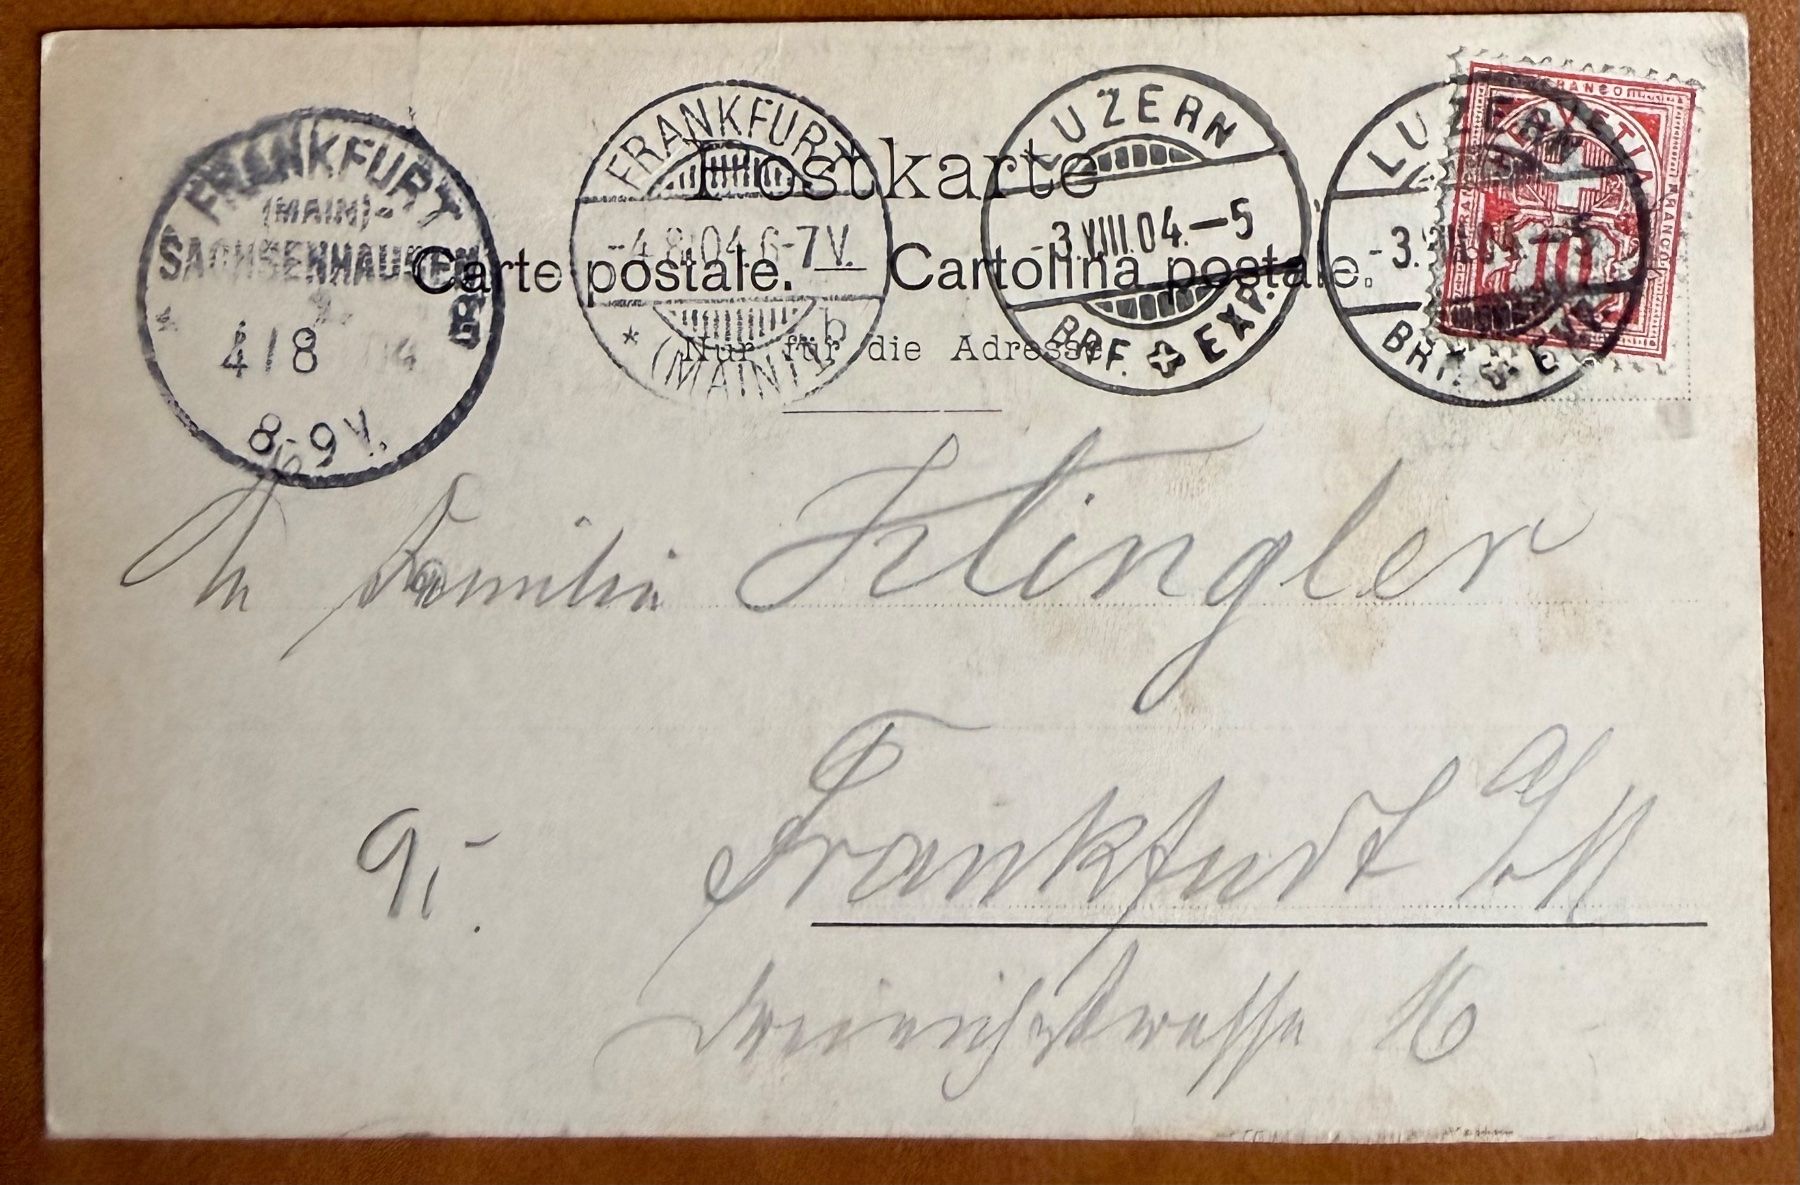 FRANKFURT
(MAIN)-
SACHSENHAUSEN
* B
4/8 04
8-9 V.
FRANKFURT
-4.8.04.6-7V.
* (MAIN) b
LUZERN
-3.VIII.04.-5
BRF. EXP.
LUZERN
-3.VIII.04.-5
BRF. EXP.
FRANCO
HELVETIA
FRANCO
FRANCO
10
Postkarte
Carte postale. — Cartolina postale.
Nur für die Adresse
An Familie Klingler
Frankfurt a/M
9,-
Dreieichstrasse 16